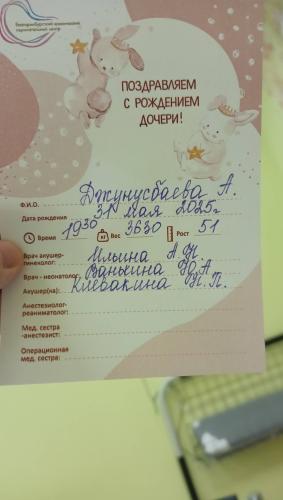 Екатеринбургский клинический
перинатальный центр
ПОЗДРАВЛЯЕМ
С РОЖДЕНИЕМ
ДОЧЕРИ!
Ф.И.О. Джунусбаева А.
Дата рождения 31 мая 2025г
Время 1930 Вес 3630 Рост 51
Врач акушер-
гинеколог: Ильина А.Н.
Врач - неонатолог: Ванькина Ю.А
Акушер(ка): Клевакина Н.П.
Анестезиолог-
реаниматолог:
Мед. сестра
-анестезист:
Операционная
мед. сестра: